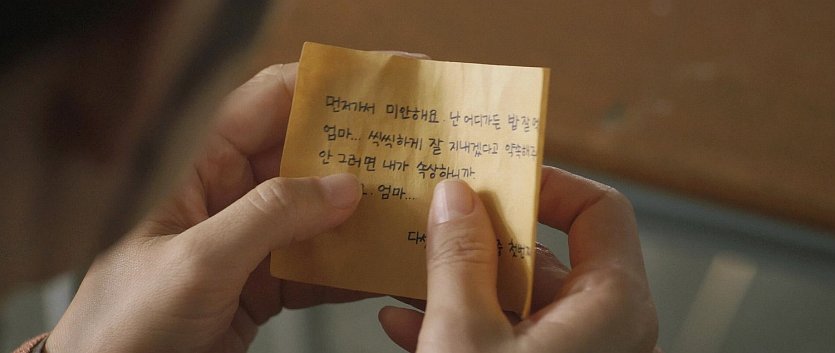 먼저가서 미안해요. 난 어디가든 밥 잘
엄마... 씩씩하게 잘 지내겠다고 약속해
안 그러면 내가 속상하니까.
엄마...
첫번